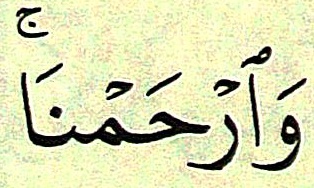 وَٱرْحَمْنَاۚ